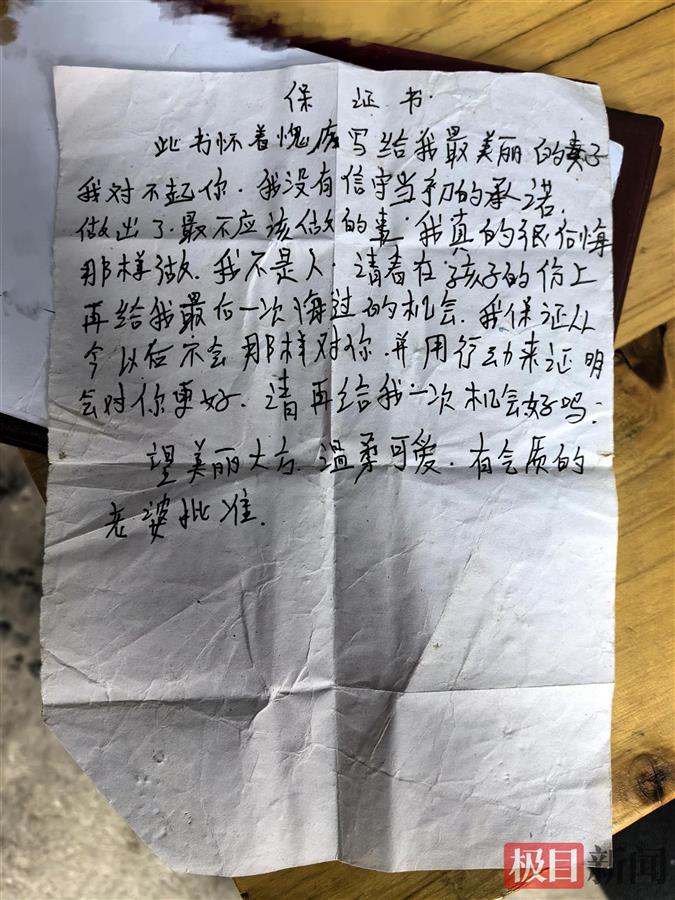 保 证 书.
此书怀着愧疚写给我最美丽的妻子
我对不起你.我没有信守当初的承诺,
做出了.最不应该做的事.我真的很后悔
那样做.我不是人.请看在孩子的份上
再给我最后一次悔过的机会.我保证从
今以后不会那样对你.并用行动来证明
会对你更好.请再给我一次机会好吗?
望美丽大方.温柔可爱.有气质的
老婆批准.
极目新闻